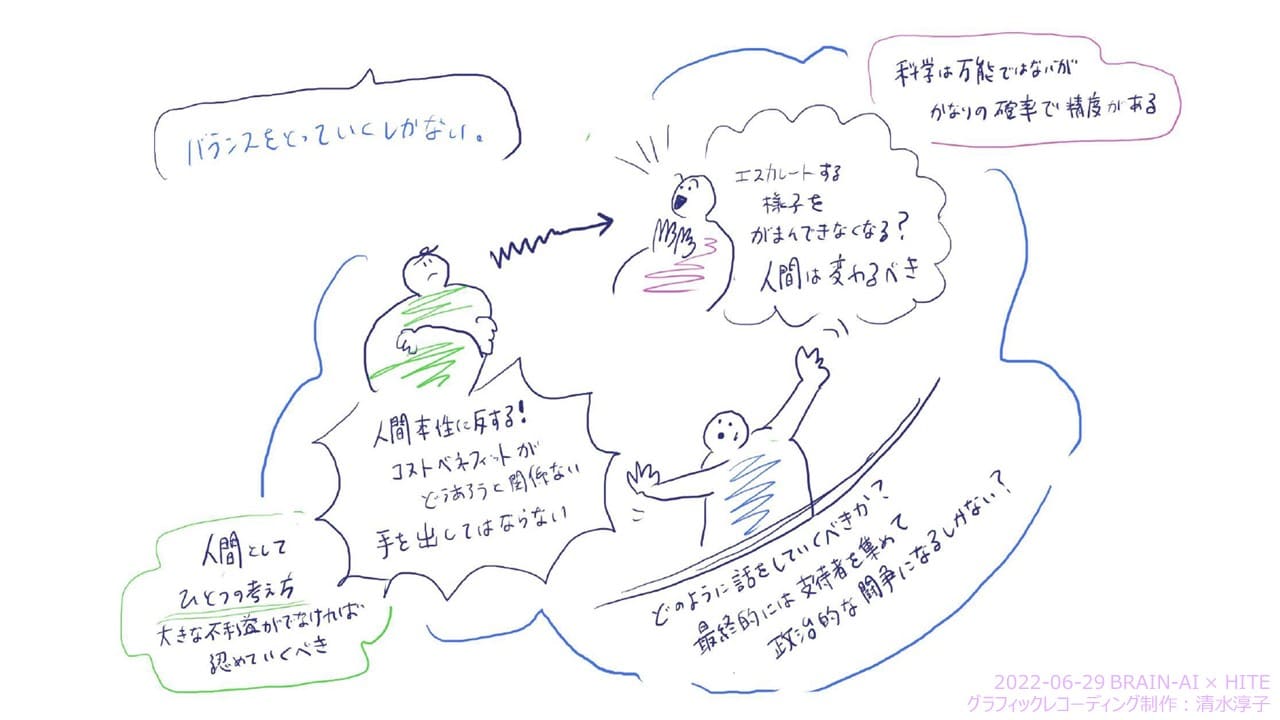 バランスをとっていくしかない。
科学は万能ではないが
かなりの確率で精度がある
エスカレートする
様子を
がまんできなくなる？
人間は変わるべき
人間本性に反する！
コストベネフィットが
どうあろうと関係ない
手を出してはならない
人間として
ひとつの考え方
大きな不利益がでなければ
認めていくべき
どのように話をしていくべきか？
最終的には支持者を集めて
政治的な闘争になるしかない？
2022-06-29 BRAIN-AI × HITE
グラフィックレコーディング制作：清水淳子